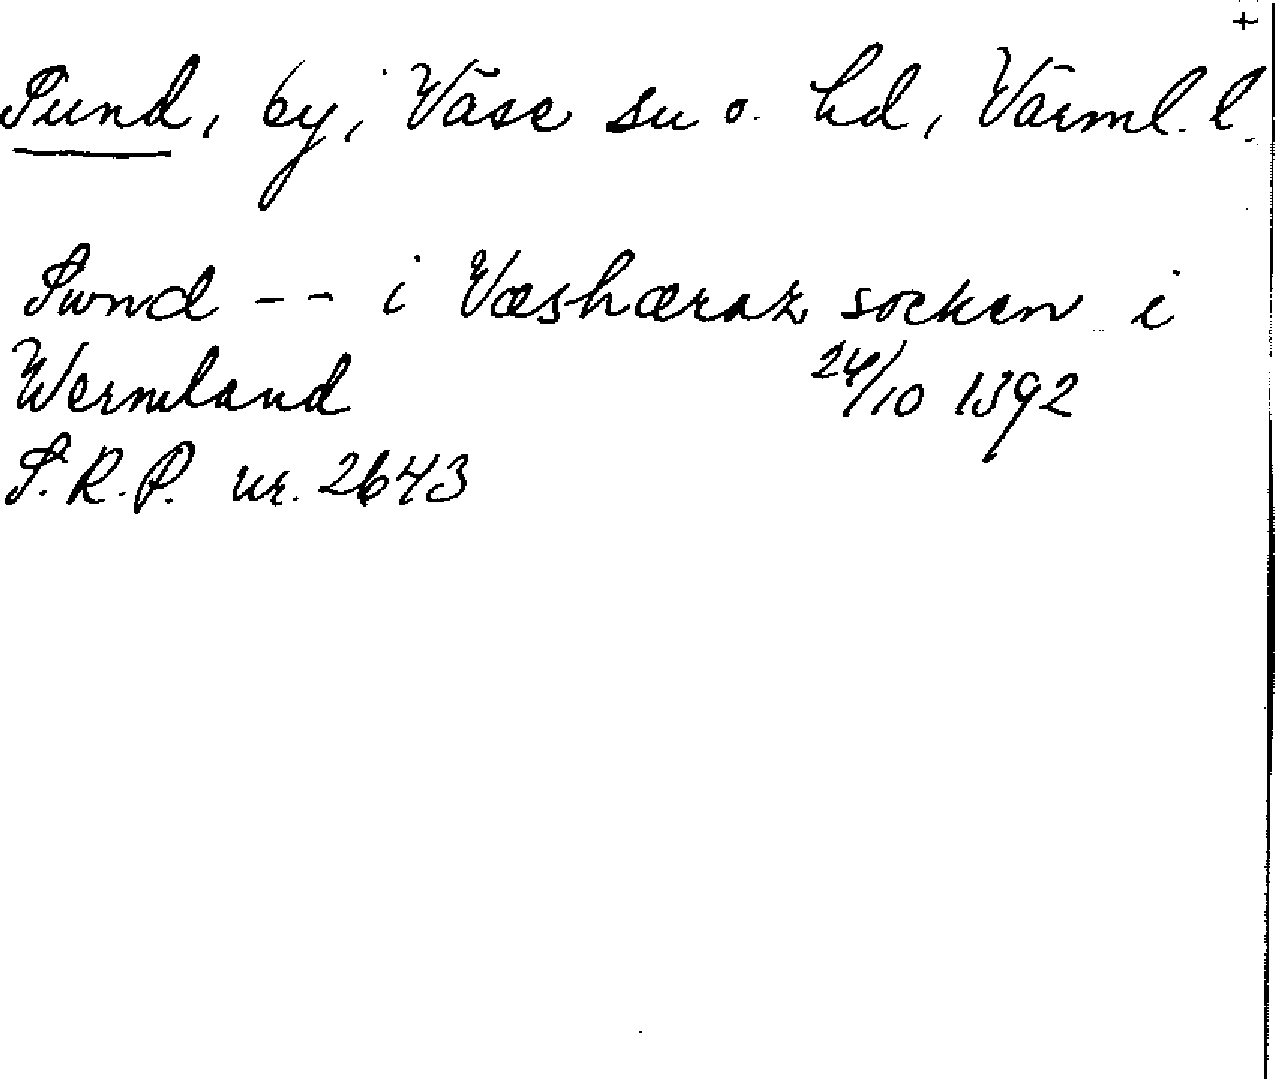 +
Sund, by, i Väse sn o. hd, Värml. l.
Swnd -- i Væshæraz socken i
Wermland 24/10 1392
S.R.P. nr. 2643